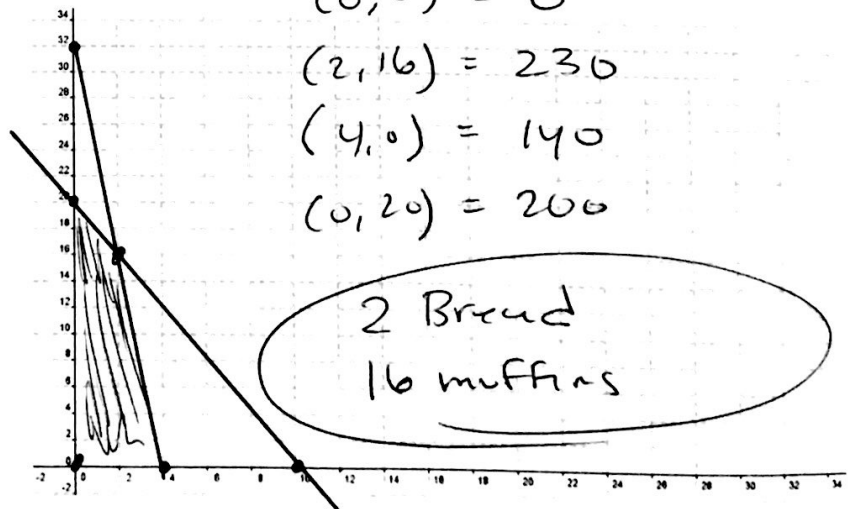 (0, 0) = 0
(2, 16) = 230
(4, 0) = 140
(0, 20) = 200
2 Bread
16 muffins
34
32
30
28
26
24
22
20
18
16
14
12
10
8
6
4
2
0
-2
-2 0 2 4 6 8 10 12 14 16 18 20 22 24 26 28 30 32 34